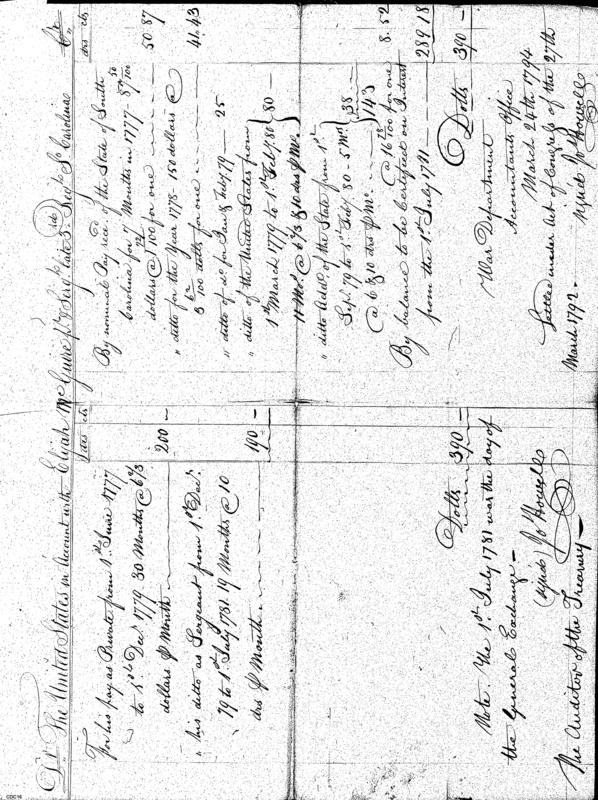 Dr. The United States in Account with Elijah McGuire pr. & Sergt. late 3. Regt. So. Carolina Cr.
drs cts
For his pay as Private from 1st June 1777
to 1st Decr 1779 30 Months @ 6 2/3
dollars P Month 200 —
" his ditto as Sergeant from 1st Decr.
79 to 1st July 1781 19 Months @ 10
drs P Month 190 —
Dolls 390 —
Note. The 1st July 1781 was the day of
the General Exchange —
(signed) Jo Howell
The Auditor of the Treasury —
drs cts
By nominal Pay recd. of the State of South
Carolina for 7 Months in 1777
dollars @ 100 for one 50 87
" ditto for the Year 1778 - 150 dollars @
100 dolls for one 41.43
" ditto of do for Jan & Feby 1779 — 25
" ditto of the United States from
1st March 1779 to 1st Feby. 80 } 80 —
11 Mos. @ 6 2/3 & 10 drs P Mo.
" ditto of the State from 1st
Sept. 79 to 1st Feby. 80 - 5 Mos. } 38
@ 6 & 10 drs P Mo. } 143
@ 16 78/100 for one 8.52
By balance to be Certified on Interest
from the 1st July 1781 289 18
Dolls 390 —
War Department
Accountants Office
March 24th 1794
Settled under Act of Congress of the 27th
March 1792.
signed Jo Howell
CDC16